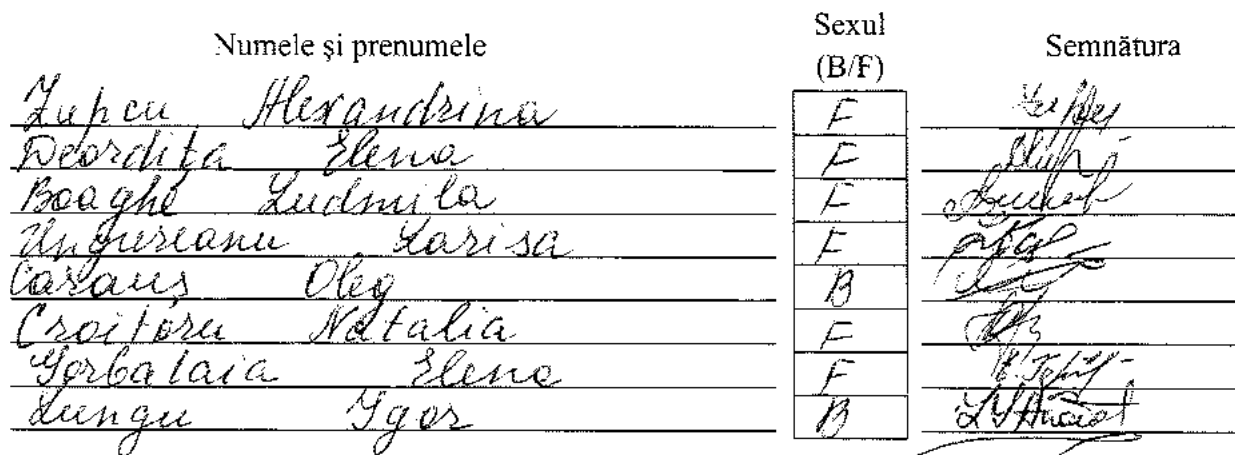 Numele și prenumele Sexul (B/F) Semnătura
Zupcu Alexandrina F
Deordița Elena F
Boaghe Ludmila F
Ungureanu Larisa F
Caraus Oleg B
Croitoru Natalia F
Gorbataia Elena F
Lungu Igor B